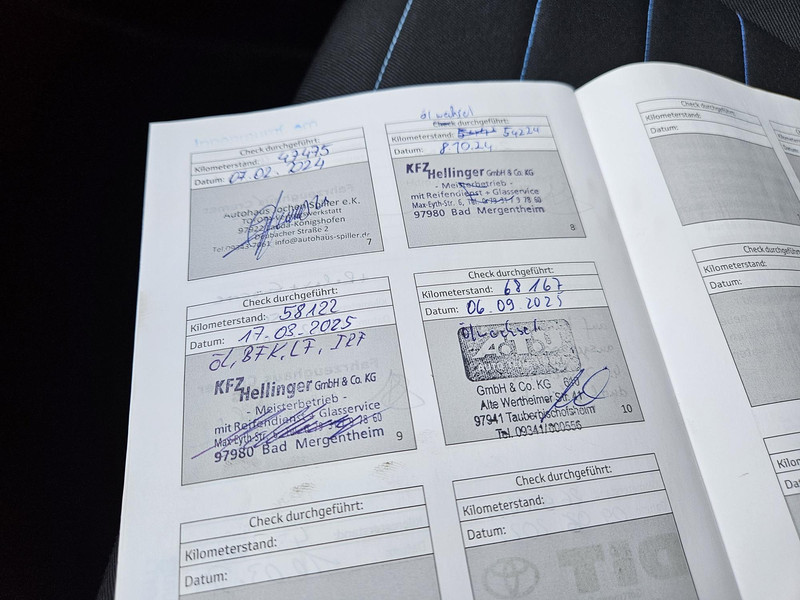 Check durchgeführt:
Kilometerstand: 47475
Datum: 07.02.2024
Autohaus Jochen Spiller e.K.
Tel.09343-7061 info@autohaus-spiller.de
7
Ölwechsel
Check durchgeführt:
Kilometerstand: 54224
Datum: 8.10.24
KFZ Hellinger GmbH & Co. KG
- Meisterbetrieb -
mit Reifendienst + Glasservice
Max-Eyth-Str. 6, Tel.
97980 Bad Mergentheim
8
Check durchgeführt:
Kilometerstand: 58122
Datum: 17.03.2025
Öl, BFK, LF, IRF
KFZ Hellinger GmbH & Co. KG
- Meisterbetrieb -
mit Reifendienst + Glasservice
Max-Eyth-Str.
97980 Bad Mergentheim
9
Check durchgeführt:
Kilometerstand: 68167
Datum: 06.09.2025
Ölwechsel
GmbH & Co. KG
Alte Wertheimer Str.
97941 Tauberbischofsheim
Tel. 09341/
10
Check durchgeführt:
Kilometerstand:
Datum:
Check durchgeführt:
Kilometerstand:
Datum:
Check durchgeführt:
Kilometerstand:
Datum:
Kilometerstand:
Datum: